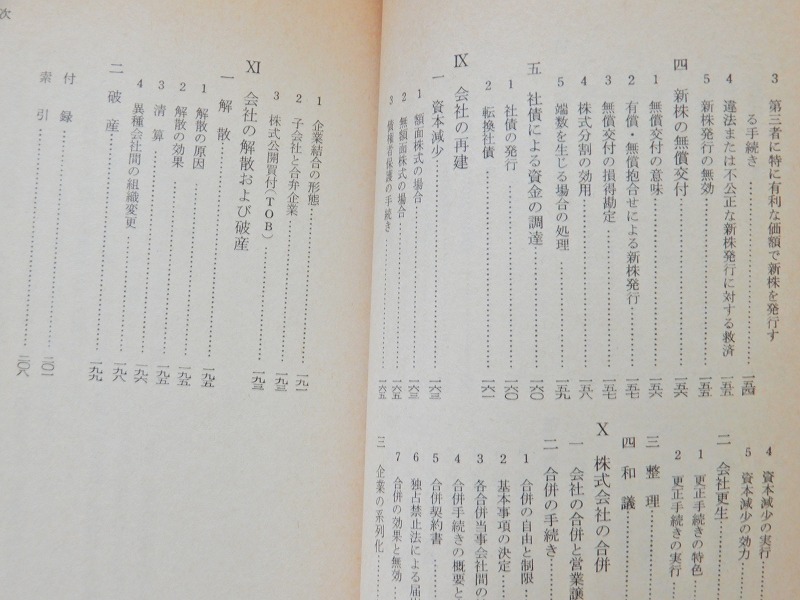 3 第三者に特に有利な価額で新株を発行す
る手続き……一五四
4 違法または不公正な新株発行に対する救済……一五五
5 新株発行の無効……一五五
四 新株の無償交付……一五六
1 無償交付の意味……一五六
2 有償・無償抱合せによる新株発行……一五七
3 無償交付の損得勘定……一五七
4 株式分割の効用……一五八
5 端数を生じる場合の処理……一五九
五 社債による資金の調達……一六〇
1 社債の発行……一六〇
2 転換社債……一六一
Ⅸ 会社の再建
一 資本減少……一六三
1 額面株式の場合……一六三
2 無額面株式の場合……一六五
3 債権者保護の手続き……一六五
4 資本減少の実行
5 資本減少の効力
二 会社更生
1 更正手続きの特色
2 更正手続きの実行
三 整理
四 和議
Ⅹ 株式会社の合併
一 会社の合併と営業譲
二 合併の手続き
1 合併の自由と制限
2 基本事項の決定
3 各合併当事会社間の
4 合併手続きの概要と
5 合併契約書
6 独占禁止法による届
7 合併の効果と無効
三 企業の系列化
次
1 企業結合の形態……一九一
2 子会社と合弁企業
3 株式公開買付(TOB)……一九三
Ⅺ 会社の解散および破産……一九三
一 解散……一九五
1 解散の原因……一九五
2 解散の効果……一九五
3 清算……一九五
4 異種会社間の組織変更……一九六
二 破産……一九八
付録……二〇一
索引……二〇八